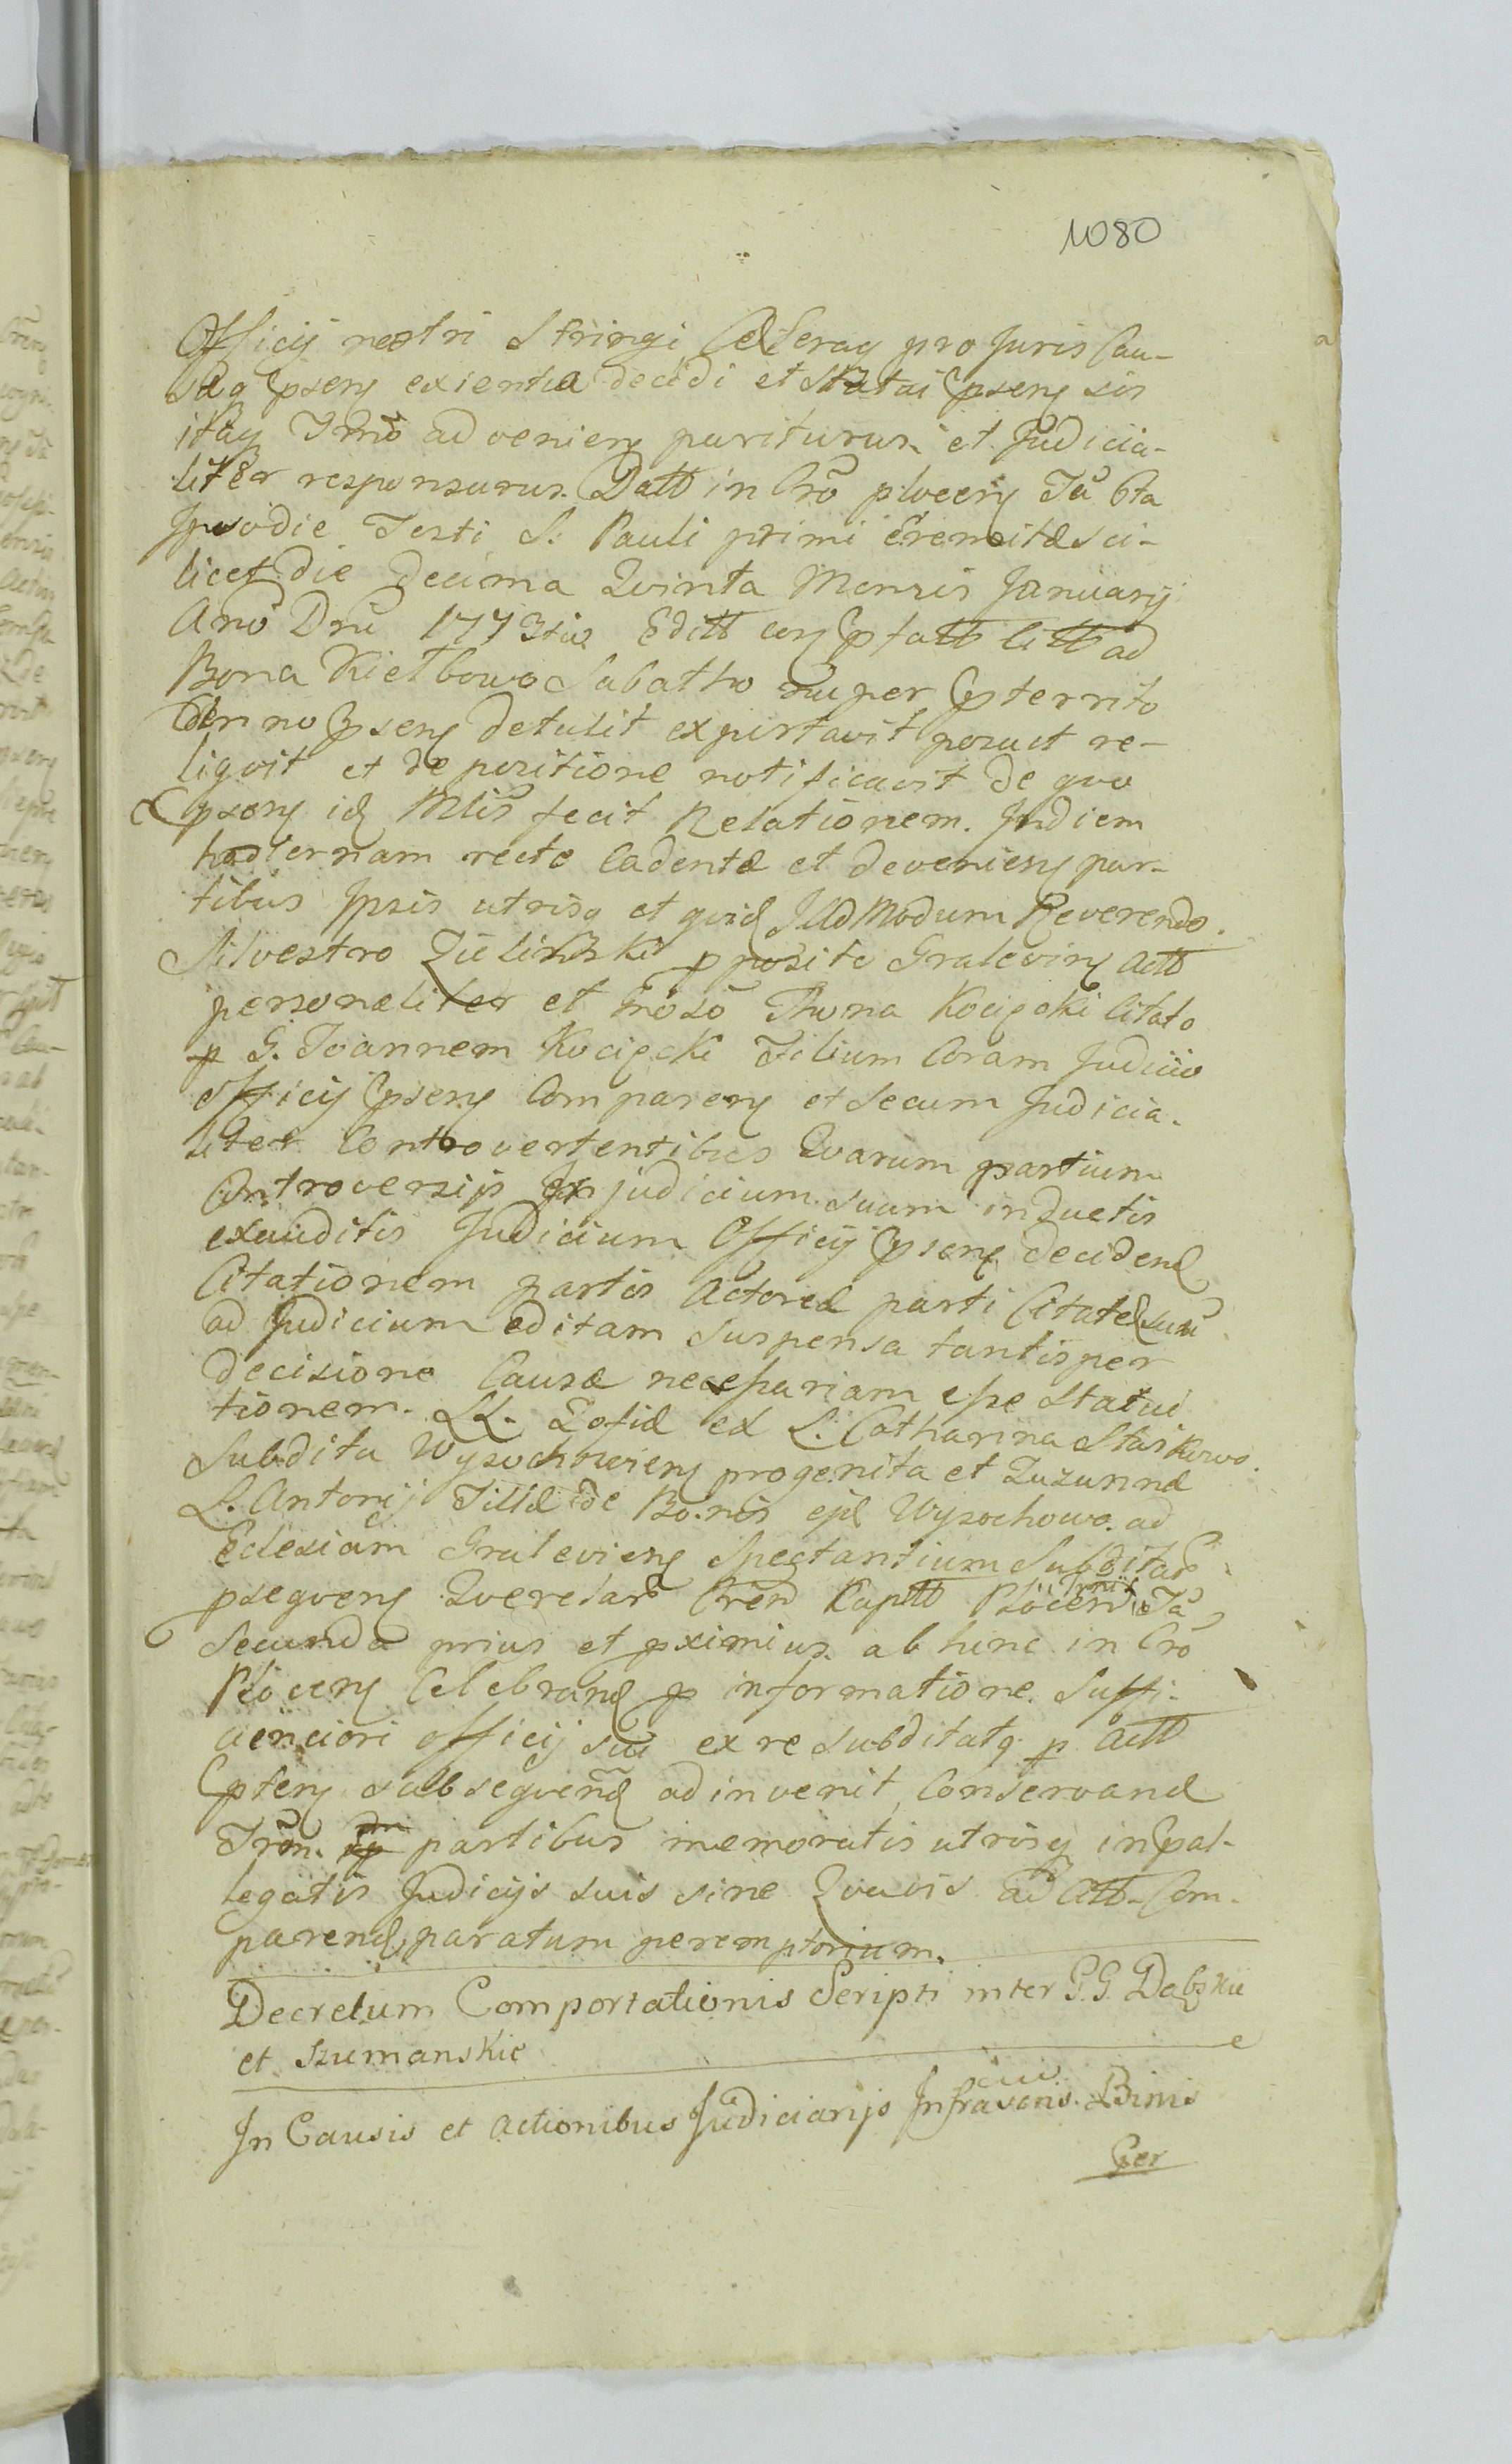 1080
Officij nostri Stringi Cæteraq pro Juris Cau-
sæq pñseñ exientia decidi et Statui pñseñ sis
itaq Tmõ adveniens pariturus et Judicia-
liter responsurus. Datt in Crõ plocen Fã 6ta
Ipsodie Festi S. Pauli primi Eremitæ sci-
licet die decima Quinta Mensis Januarij
Anõ Dñi 1773tio Editt
Bona Kiełbowo Sabatho nuper præterito
detulit exportavit posuit re-
liqvit et de positione notificavit de quo
id Mlis fecit Relationem. In diem
hodiernam recte Cadente et devenien par-
tibus Ipsis utrisq et qvid Illd Modum Reverendo.
Silvestro Zielinski pposito Gralevien Actt
personaliter et Gnõsõ Thoma Kocięcki Citato
p G. Joannem Kocięcki Filium Coram Judicio
Officij pñseñ Comparen et secum Judicia-
liter Controvertentibus Quarum partium
Controversijs In judicium suum inductis
exauditis Judicium Officij pñseñ decidend
Citationem partis Actoreæ parti Citatæ
ad Judicium editam suspensa tantisper
decisione Causæ necessariam esse Statui
tionem. LL. Zofiæ ex L. Catharina
Subdita Wysochowien progenita et Zuzannæ
L. Antonij Filiæ de Bonis ejd Wysochowo ad
Eclesiam Gralevien Spectantium Subditar
psequen Querelar Cren Captt Plocen Tmis Fã
Secunda prius et pximius ab hinc in Crõ
Plocen Celebrand p informatione Suffi-
cienciori officij sui ex re subditatq p Actt
subsequend ad invenit Conservand
Trõn. partibus memoratis utrisq in pal-
legatis Judicijs suis sine Quavis ad Att. Com-
parend paratum peremptorium.
Decretum Comportationis Scripti inter G.G. Dąbskie
et Szumanskie
In Causis et Actionibus Judiciarijs Infrascris. Binis
Per